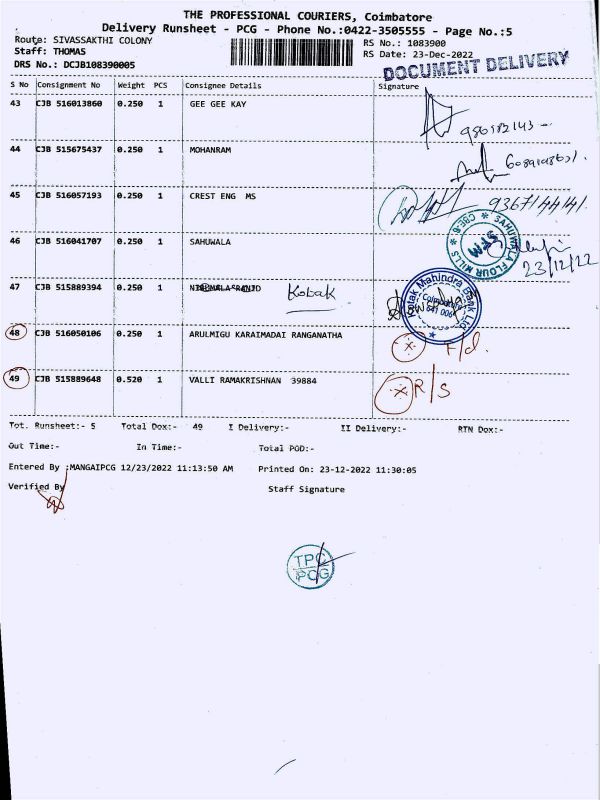 THE PROFESSIONAL COURIERS, Coimbatore
Delivery Runsheet - PCG - Phone No.:0422-3505555 - Page No.:5
Route: SIVASSAKTHI COLONY
RS No.: 1083900
Staff: THOMAS
RS Date: 23-Dec-2022
DRS No.: DCJB108390005
DOCUMENT DELIVERY
S No Consignment No Weight PCS Consignee Details Signature
43 CJB 516013860 0.250 1 GEE GEE KAY
44 CJB 515675437 0.250 1 MOHANRAM
45 CJB 516057193 0.250 1 CREST ENG MS
9367144141
46 CJB 516041707 0.250 1 SAHUWALA
SAHUWALA FLOUR MILLS * CBE-6 *
23/12/22
47 CJB 515889394 0.250 1
Kotak
Kotak Mahindra Bank Ltd
Coimbatore
641 006
48 CJB 516050106 0.250 1 ARULMIGU KARAIMADAI RANGANATHA
F/d.
49 CJB 515889648 0.520 1 VALLI RAMAKRISHNAN 39884
R/S
Tot. Runsheet:- 5 Total Dox:- 49 I Delivery:- II Delivery:- RTN Dox:-
Out Time:- In Time:- Total POD:-
Entered By :MANGAIPCG 12/23/2022 11:13:50 AM Printed On: 23-12-2022 11:30:05
Verified By Staff Signature
TPC
PCG